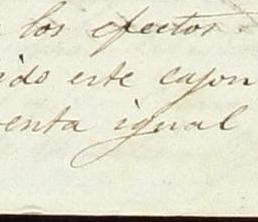 los efectos
ido este cajon
enta igual